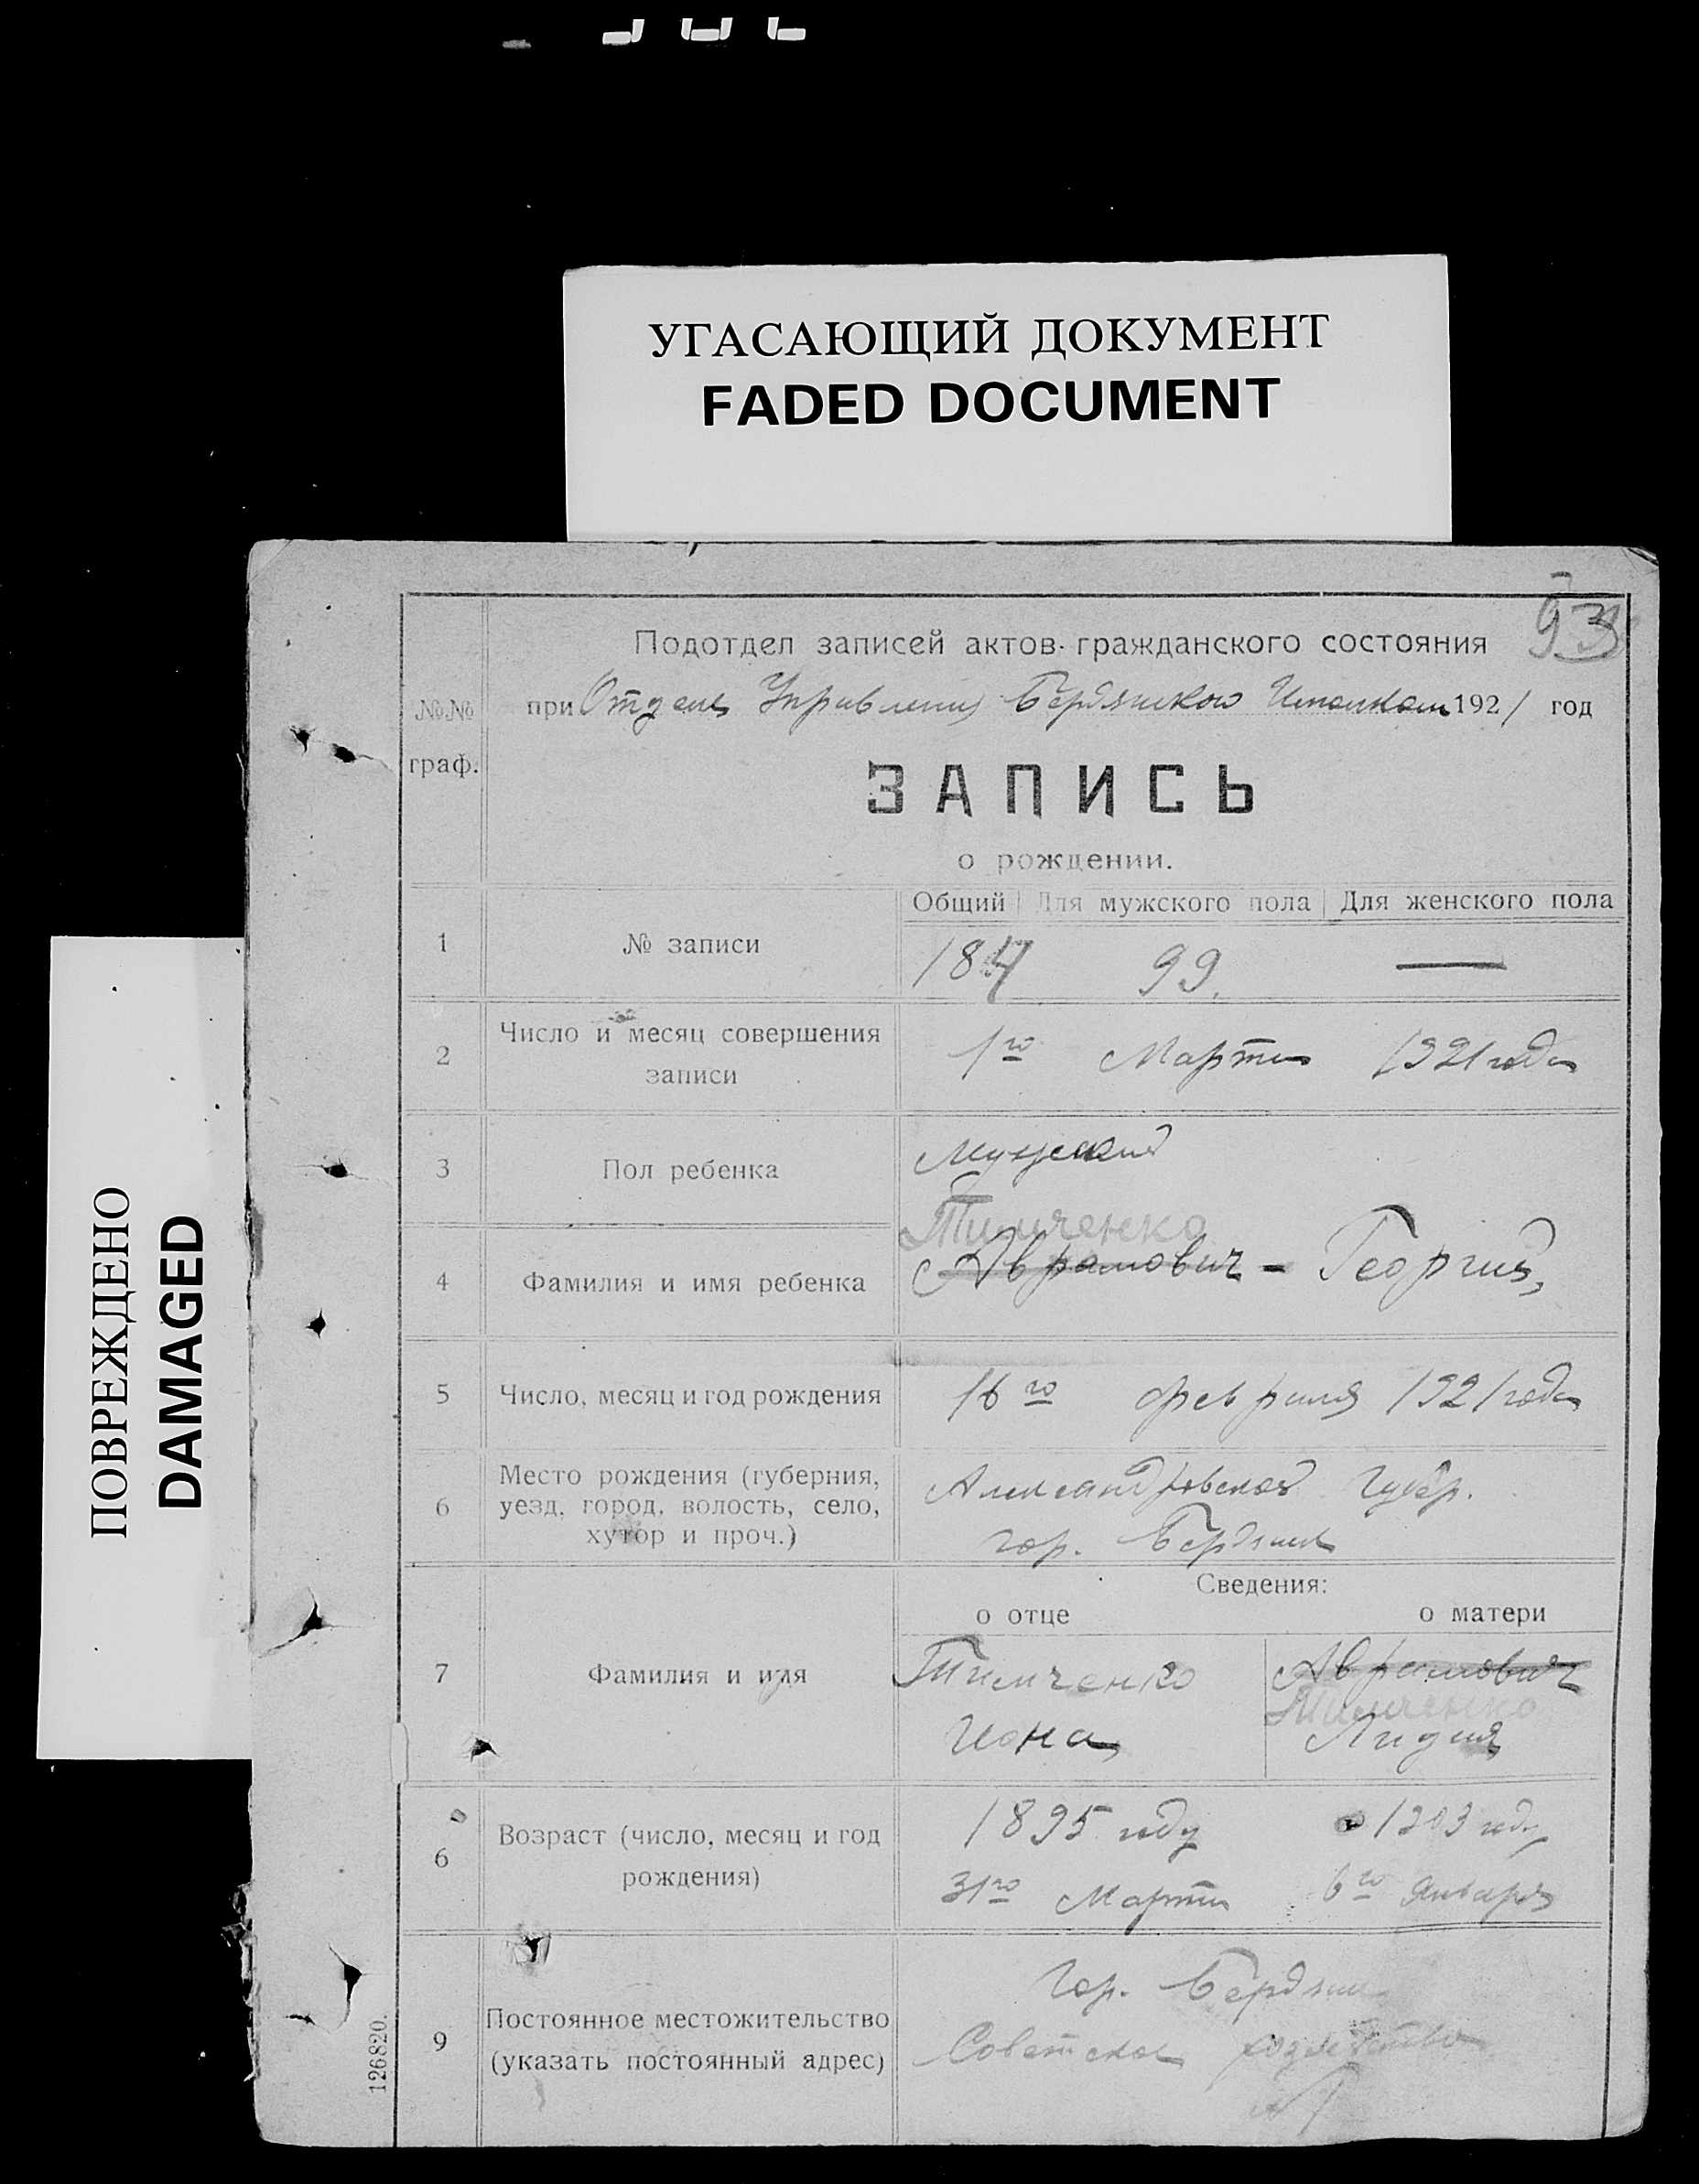 УГАСАЮЩИЙ ДОКУМЕНТ
FADED DOCUMENT
ПОВРЕЖДЕНО
DAMAGED
93
Подотдел записей актов гражданского состояния
№№ граф.
при Отделе Управления Бердянского Исполкома 1921 год
ЗАПИСЬ
о рождении.
Общий Для мужского пола Для женского пола
1 № записи 99. —
2 Число и месяц совершения записи 1го Марта 1921 года
3 Пол ребенка Мужской
Тимченко
4 Фамилия и имя ребенка Аврамович - Георгий
5 Число, месяц и год рождения 16го февраля 1921 года
6 Место рождения (губерния, уезд, город, волость, село, хутор и проч.)
Александровская Губер.
гор. Бердянск
Сведения:
о отце о матери
7 Фамилия и имя
Тимченко Аврамович
Тимченко
Иона Лидия
6 Возраст (число, месяц и год рождения)
1895 году 1903 году
31го Марта 6го Января
9 Постоянное местожительство (указать постоянный адрес)
Гор. Бердянск
Советское
126820.